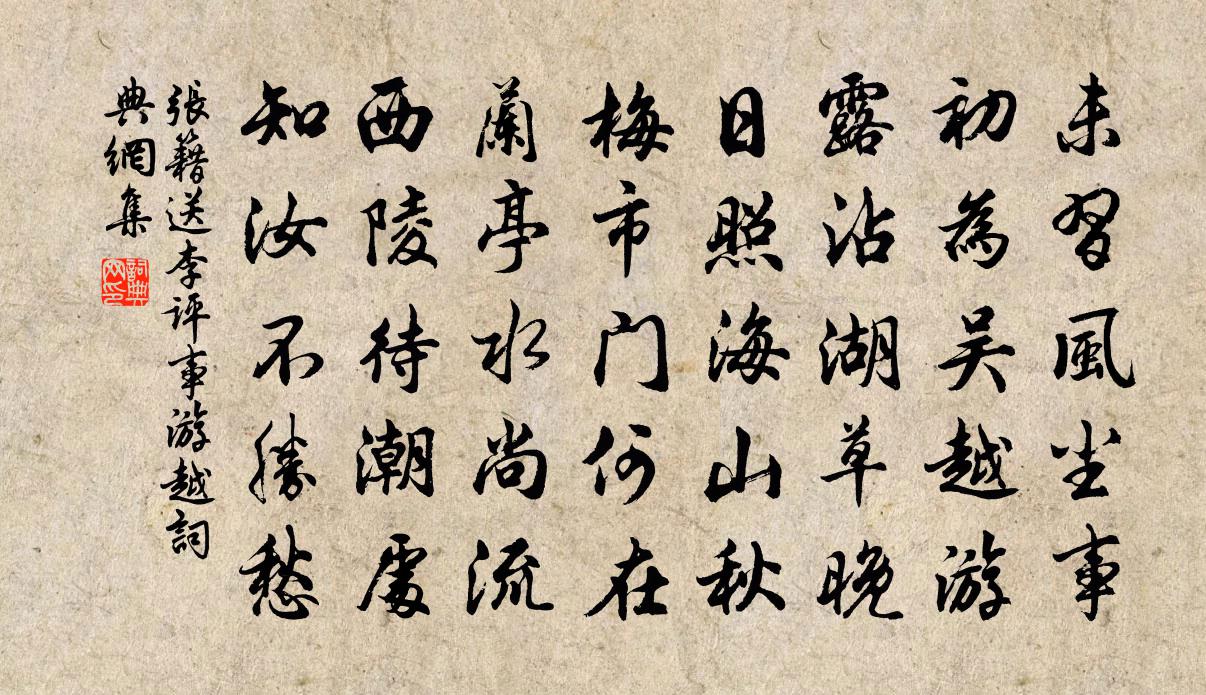 未習風塵事
初為吴越游
露沾湖草晚
日照海山秋
梅市門何在
蘭亭水尚流
西陵待潮處
知汝不勝愁
張籍送李評事游越詞
典網集
詞典
网印